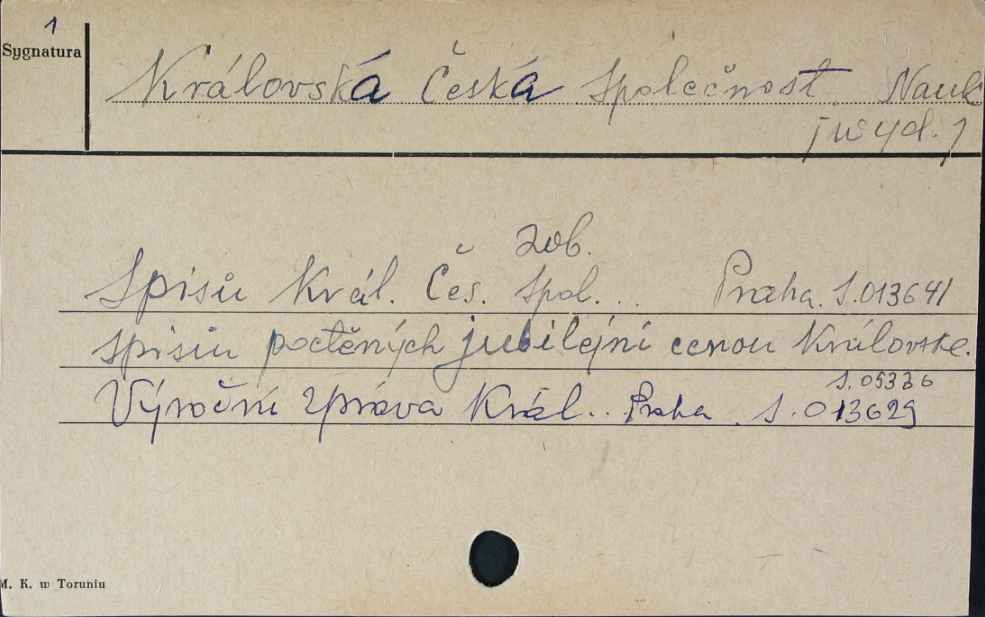 1
Sygnatura
Královská Česká Společnost Nauk
[wyd.]
zob.
Spisů Král. Čes. Spol... Praha. S.013641
spisiu poctěných jubilejní cenou Královske.
S.05336
Výroční zpráva Král.. Praha. S.013629
M. K. w Toruniu